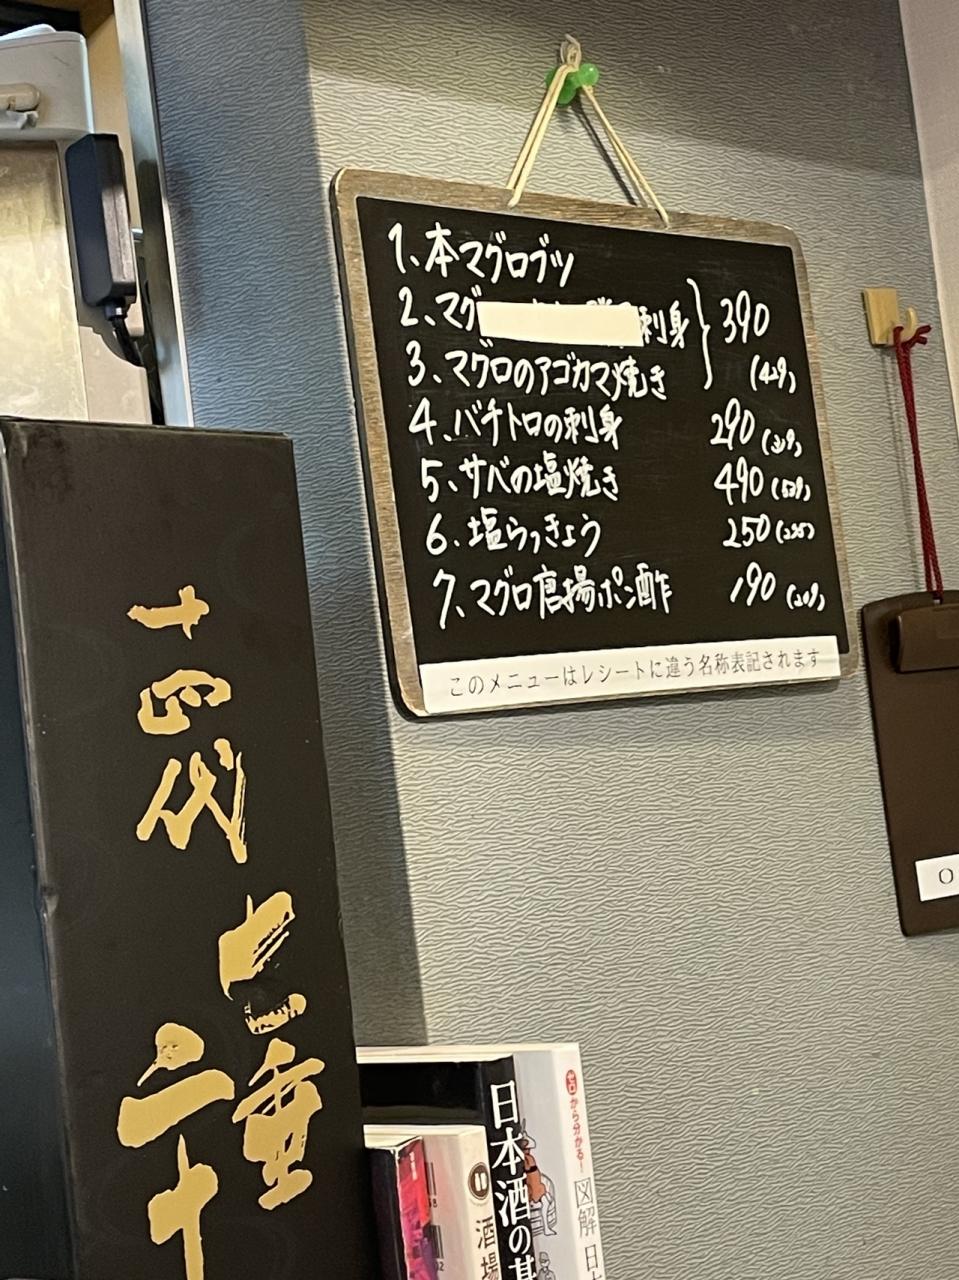 1、本マグロブツ
2、マグ 刺身 390
3、マグロのアゴカマ焼き (429)
4、バチトロの刺身 290 (319)
5、サバの塩焼き 490 (539)
6、塩らっきょう 250 (275)
7、マグロ唐揚ポン酢 190 (209)
このメニューはレシートに違う名称表記されます
十四代
七垂
二十
日本酒の基
ゼロから分かる!
図解 日本
酒場